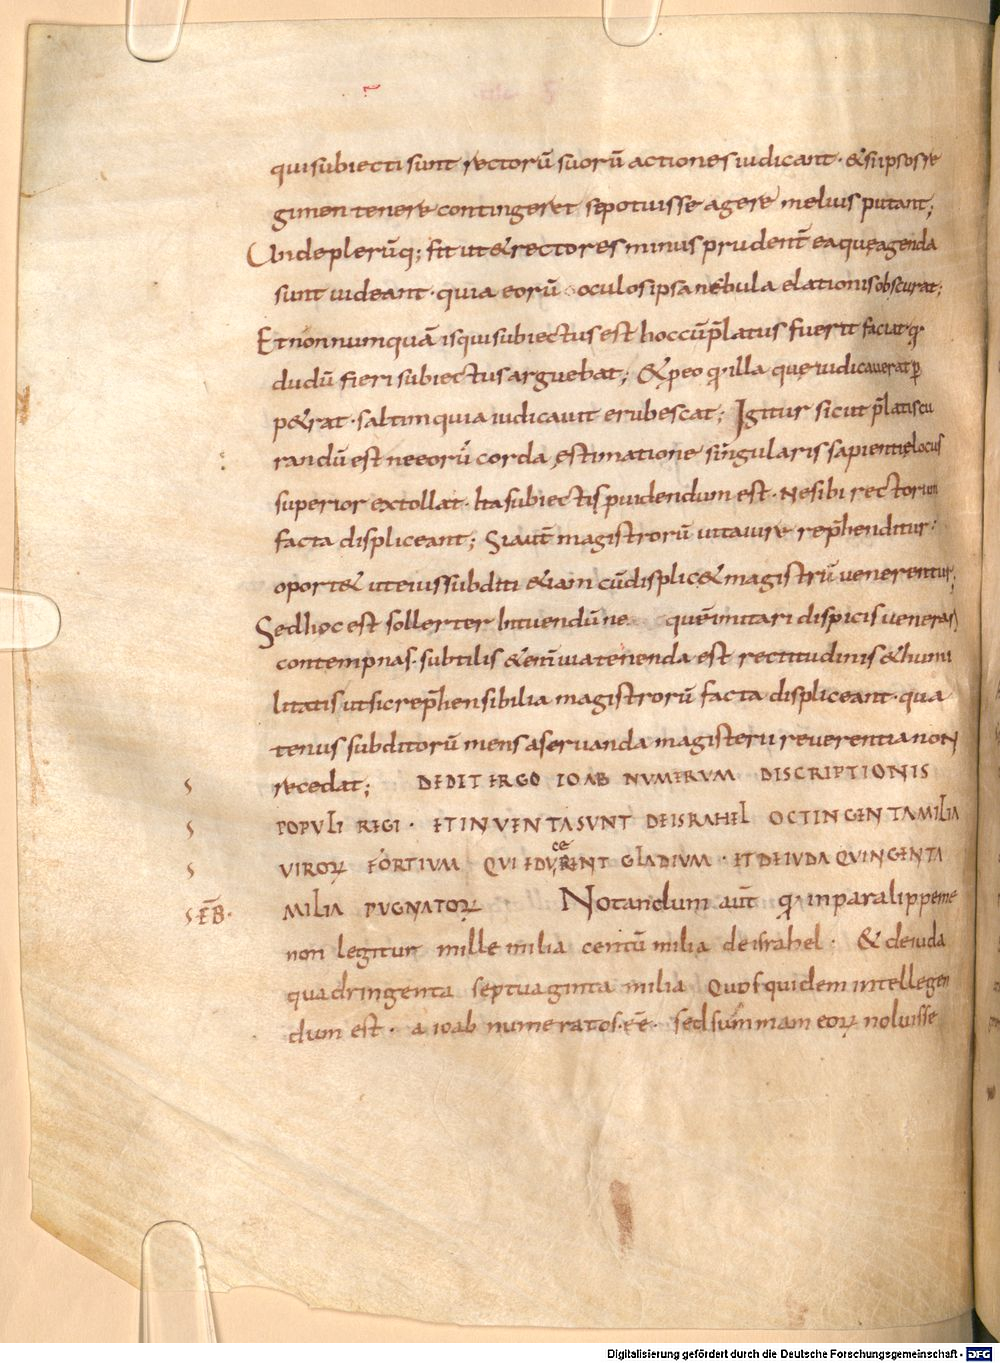 qui subiecti sunt rectorū suorū actiones iudicant · & si ipsos re
gimen tenere contingeret se potuisse agere melius putant;
Unde plerūq; fit ut & rectores minus prudent̄ ea quę agenda
sunt uideant · quia eorū oculos ipsa nebula elationis obscurat;
Et non numquā is qui subiectus est hoc cū p̄latus fuerit faciat q̇
dudū fieri subiectus arguebat; & p eo q̇ illa quę iudicauerat p̱
p&rat · saltim quia iudicauit erubescat; Igitur sicut p̄latis cu
randū est ne eorū corda ęstimatione singularis sapientię locus
superior extollat · Ita subiectis puidendum est · Ne sibi rectorum
facta displiceant; Si aut̄ magistrorū uita iure rep̄henditur ·
oport& ut eius subditi &iam cū displic& magistrū uenerentur;
Sed hoc est sollerter Intuendū ne quē imitari dispicis uenerari
contempnas · subtilis &eni̅ uia tenenda est rectitudinis & humi
litatis ut sic rep̄hensibilia magistrorū facta displiceant · qua
tenus subditorū mens a seruanda magisterii reuerentia non
recedat; DEDIT ERGO IOAB NUMERUM DISCRIPTIONIS
S
POPULI REGI · ET INUENTA SUNT DE ISRAHEL OCTINGENTA MILIA
S
UIRORꝜ FORTIUM QUI EDU̩RENT GLADIUM · ET DE IUDA QUINGENTA
ce
S
MILIA PUGNATORꝜ Notandum aut̄ q̇ in paralippeme
S EB̄ ·
non legitur mille milia centū milia de israhel · & de iuda
quadringenta septuaginta milia Quos quidem intellegen
dum est · a ioab numeratos · eē · sed summam eorꝝ noluisse
Digitalisierung gefördert durch die Deutsche Forschungsgemeinschaft - DFG